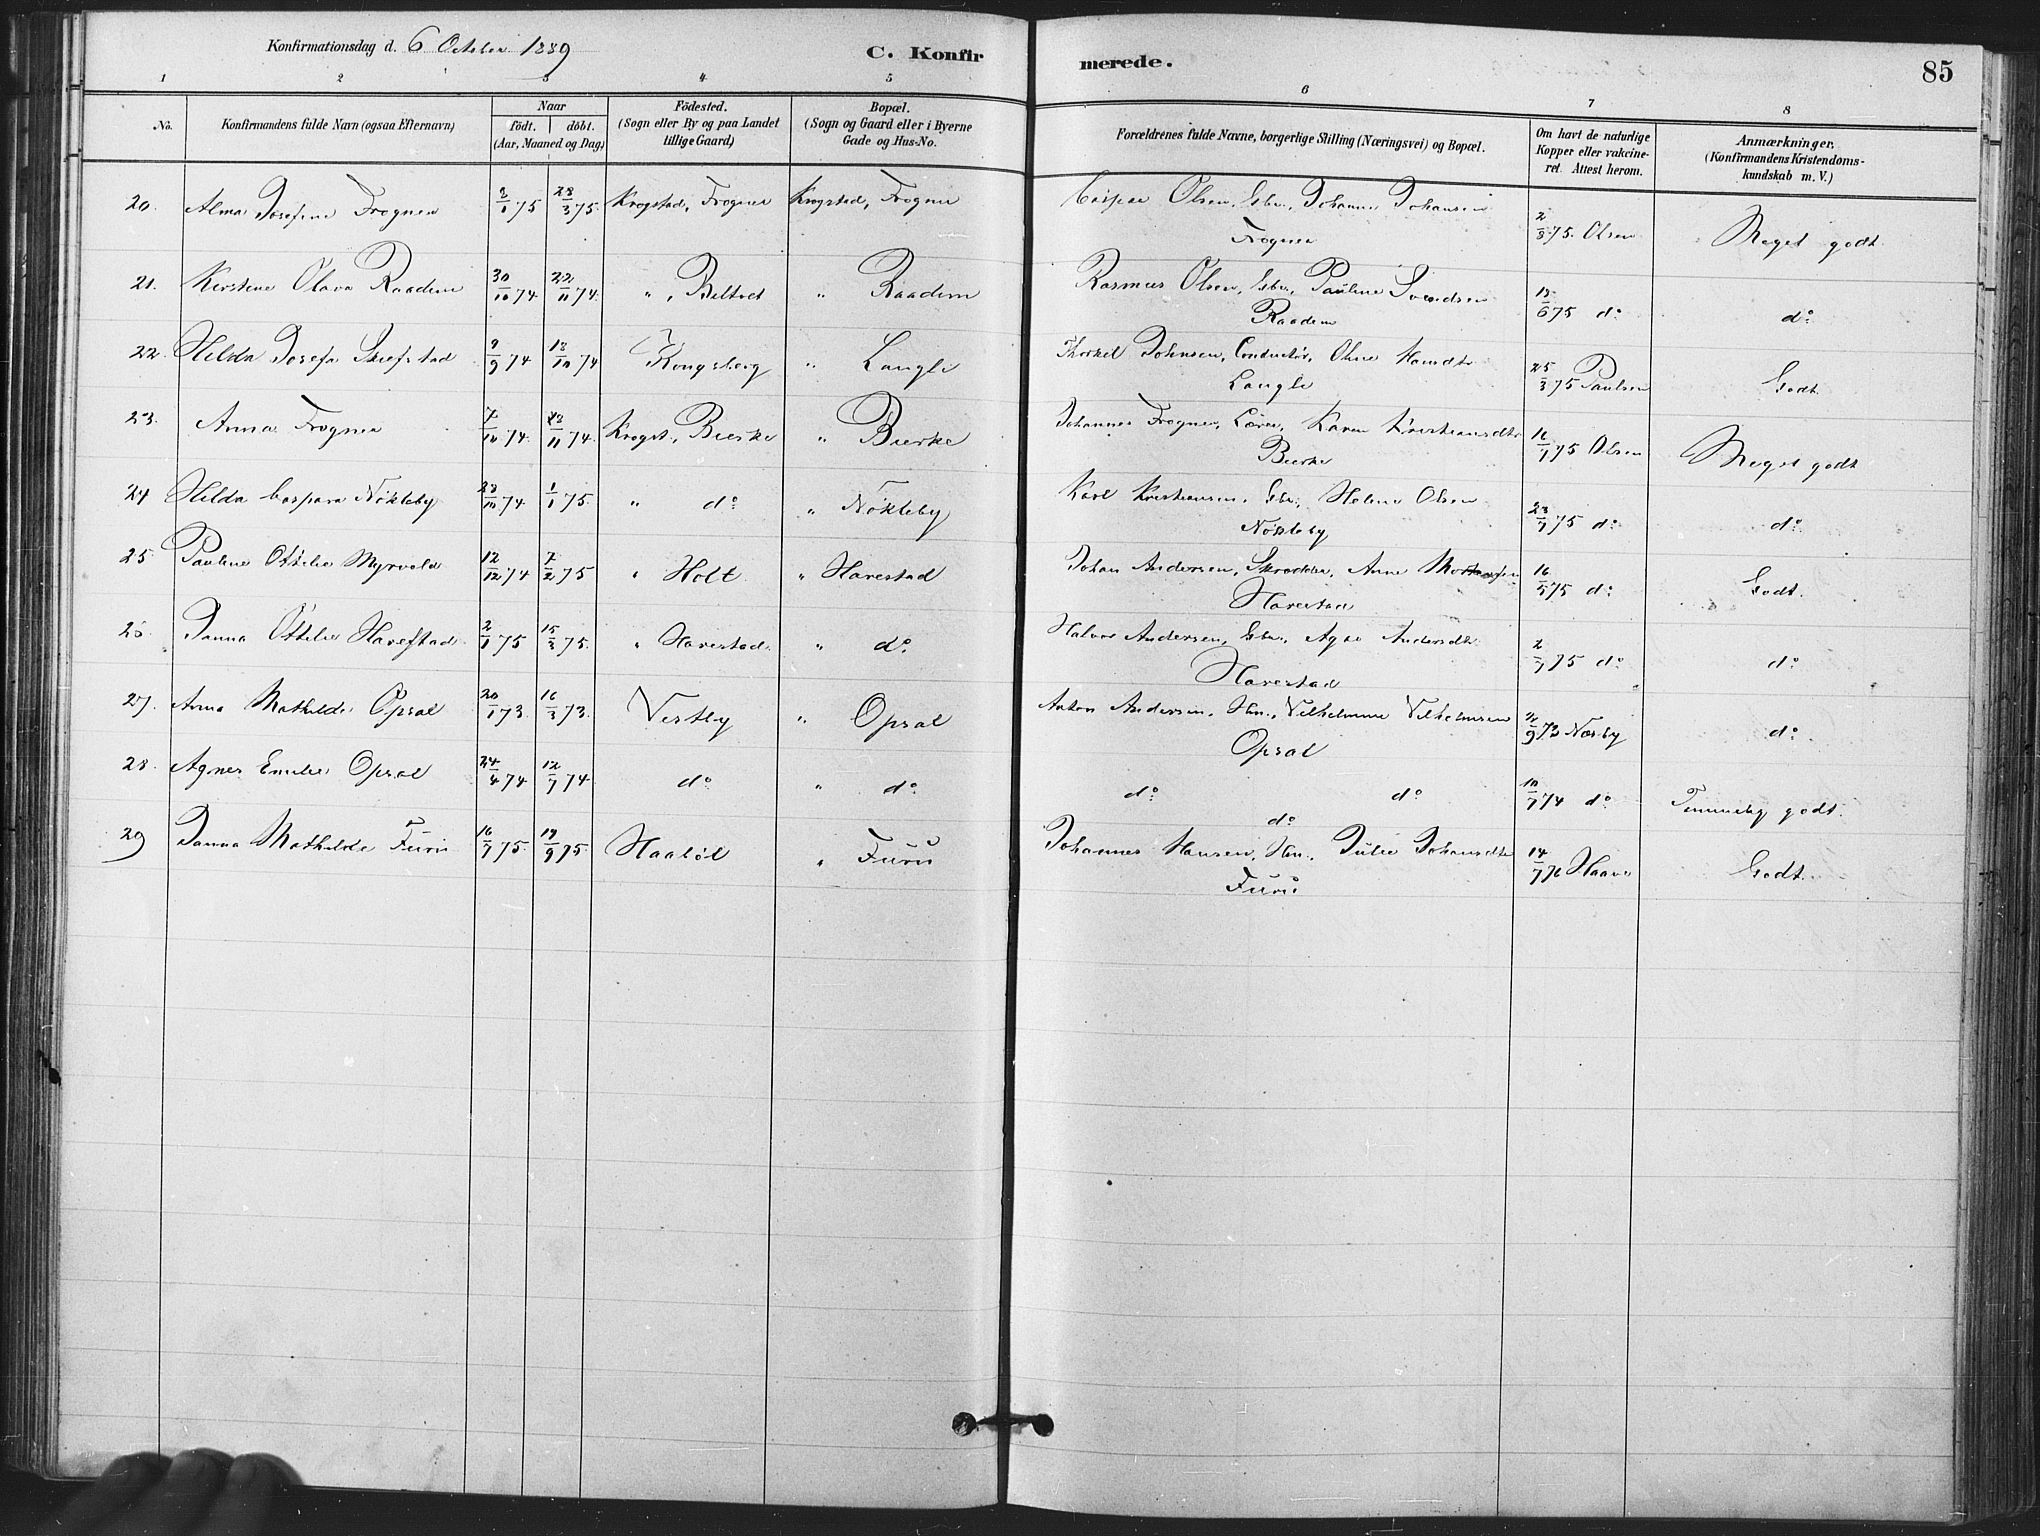 Konfirmationsdag d. 6 October 1889
C. Konfir merede. 85
1 2 3 4 5 6 7 8
No. Konfirmandens fulde Navn (ogsaa Efternavn) Naar født. døbt. (Aar, Maaned og Dag) Födested. (Sogn eller By og paa Landet tillige Gaard) Bopæl. (Sogn og Gaard eller i Byerne Gade og Hus-No. Forældrenes fulde Navne, borgerlige Stilling (Næringsvei) og Bopæl. Om havt de naturlige Kopper eller vakcineret. Attest herom. Anmærkninger. (Konfirmandens Kristendomskundskab m. V.)
20. Alma Josefine Frogner 2/1 75 28/3 75. Krogstad, Frogner Krogstad, Frogner Caspar Olsen, Gbr., Johanne Johansen 2/8 75. Olsen Meget godt.
Frogner
21. Kirstine Olava Raadem 30/10 74 22/11 74. " , Biltvet " Raadem Rasmus Olsen, Gbr., Pauline Svendsen 18/6 75 do do
Raadem
22. Hilda Josefa Skiefstad 9/9 74 18/10 74 Kongsberg " Langli Thorkel Johnsen, Conductør, Oline Hansdtr 25/3 75 Paulsen Godt
Langli
23. Anna Frogner 7/10 74. 22/11 74. Krogst., Bierke " Bierke Johannes Frogner, Lærer, Karen Kristiansdtr 16/7 75 Olsen Meget godt
Bierke
24 Hilda Caspara Nökleby 28/10 74. 1/1 75. " do " Nökleby Karl Kristiansen, Gbr., Helene Olsen 28/7 75 do do
Nökleby
25. Pauline Ottilie Myrvold 12/12 74 7/2 75 " Holt " Harestad Johan Andersen, Skrædder, Anne 16/5 75 do Godt.
Harestad
26. Janna Ottilie Harestad 2/1 75 15/3 75. " Harestad. " do Halvor Andersen, Gbr., Agac Andersdtr 2/7 75 do do
Harestad
27. Anna Mathilde Opsal 20/1 73. 16/3 73. Vestby " Opsal Anton Andersen, Hm., Vilhelmine Vilhelmsen 73 Næsby do
Opsal
28. Agnes Emilie Opsal 24/4 74 12/7 74. do " do do do 10/7 74 do Temmelig godt.
do
29 Janna Mathilde Furu 16/7 75. 19/9 75 Haaböl " Furu Johannes Hansen, Hm., Julie Johansdtr 14/7 76 Haave Godt.
Furu